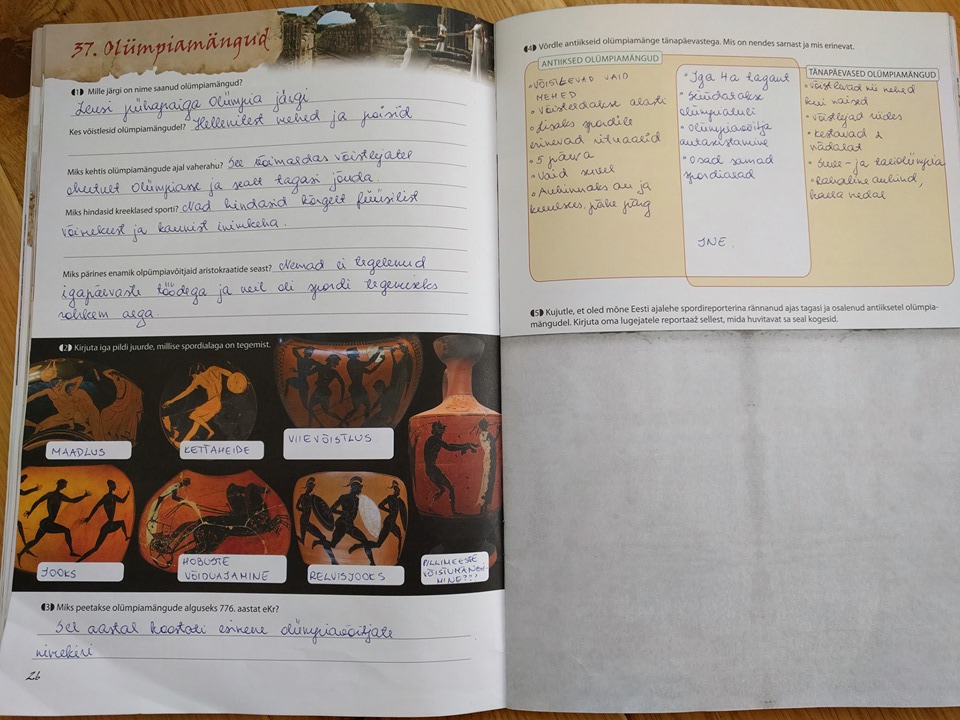 37. Olümpiamängud
1 Mille järgi on nime saanud olümpiamängud?
Zeusi pühapaiga Olümpia järgi
Kes võistlesid olümpiamängudel? Hellenitest mehed ja poisid
Miks kehtis olümpiamängude ajal vaherahu? See võimaldas võistlejatel
ohutult Olümpiasse ja sealt tagasi jõuda.
Miks hindasid kreeklased sporti? Nad hindasid kõrgelt füüsilist
võimekust ja kaunist inimkeha.
Miks pärines enamik olpümpiavõitjaid aristokraatide seast? Nemad ei tegelenud
igapäevaste töödega ja neil oli spordi tegemiseks
rohkem aega.
2 Kirjuta iga pildi juurde, millise spordialaga on tegemist.
MAADLUS
KETTAHEIDE
VIIEVÕISTLUS
JOOKS
HOBUSTE
VÕIDUAJAMINE
RELVISJOOKS
PILLIMEESTE
VÕISTUMÄNGI-
MINE???
3 Miks peetakse olümpiamängude alguseks 776. aastat eKr?
Sel aastal koostati esimene olümpiavõitjate
nimekiri
26
4 Võrdle antiikseid olümpiamänge tänapäevastega. Mis on nendes sarnast ja mis erinevat.
ANTIIKSED OLÜMPIAMÄNGUD
• VÕISTLEVAD VAID
MEHED
• Võisteldakse alasti
• Lisaks spordile
erinevad rituaalid
• 5 päeva
• Vaid suvel
• Auhinnaks au ja
kuulsus, pähe pärg
• Iga 4a tagant
• Süüdatakse
olümpiatuli
• Olümpiavõitja
autasustamine
• Osad samad
spordialad
JNE.
TÄNAPÄEVASED OLÜMPIAMÄNGUD
• Võistlevad nii mehed
kui naised
• Võistlejad riides
• Kestavad 2
nädalat
• Suve- ja taliolümpia
• Rahaline auhind,
kaela medal
5 Kujutle, et oled mõne Eesti ajalehe spordireporterina rännanud ajas tagasi ja osalenud antiiksetel olümpia-
mängudel. Kirjuta oma lugejatele reportaaž sellest, mida huvitavat sa seal kogesid.